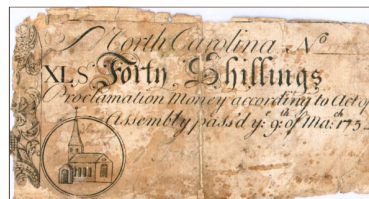 North Carolina Nᵒ
XLS Forty Shillings
Proclamation Money according to Act of
Assembly pass'd yᵉ 9ᵗʰ of Ma:ᶜʰ 175